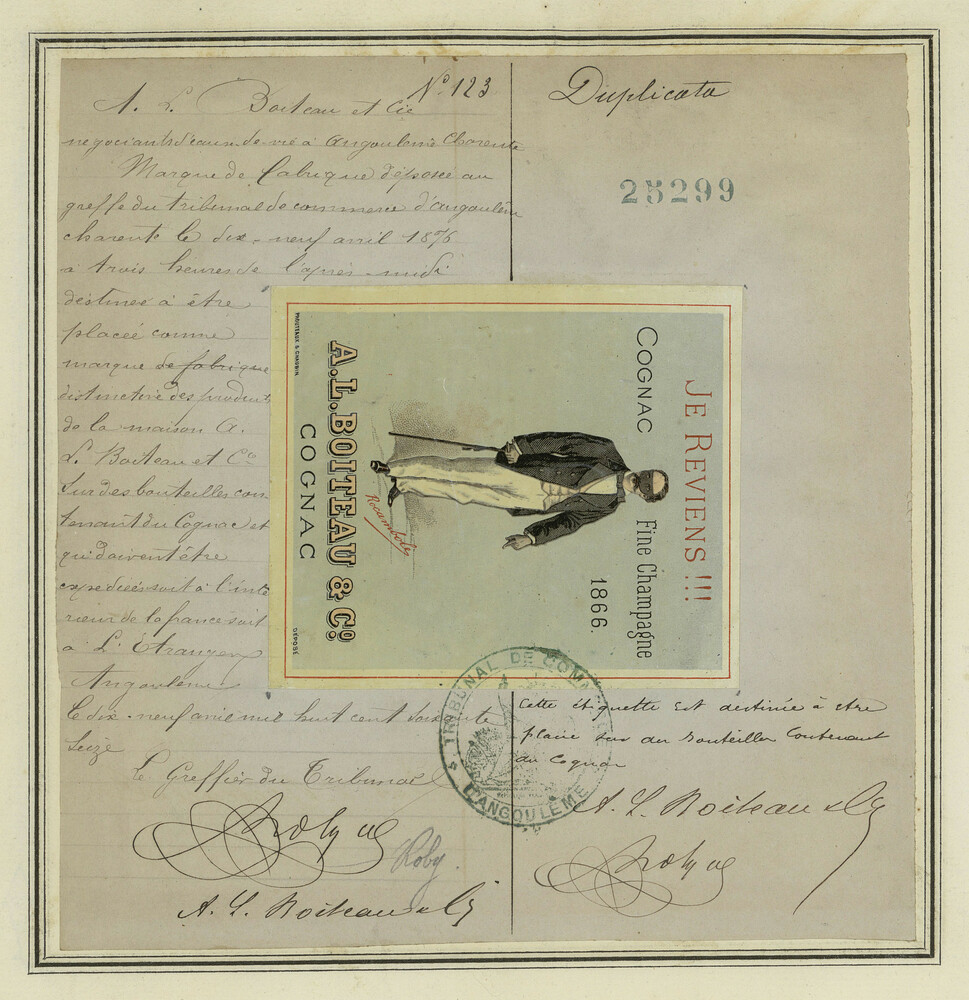 N° 123
A. L. Boiteau et Cie
negociants d'eaux-de-vie à Angoulême Charente
Marque de fabrique déposée au
greffe du tribunal de commerce d'angoulême
charente le dix-neuf avril 1876
à trois heures de l'après-midi
destinée à être
placée comme
marque de fabrique
distinctive des produits
de la maison A.
L. Boiteau et Co
sur des bouteilles con
tenant du Cognac et
qui doivent être
expediées soit à l'inté
rieur de la france soit
à L'Etranger
Angouleme
Le dix-neuf avril mil huit cent soixante
seize
Le Greffier du Tribunal
Roby
A. L. Boiteau & Cie
Duplicata
25299
JE REVIENS !!!
COGNAC Fine Champagne
1866.
Rocambole
A.L. BOITEAU & Co.
COGNAC
PROUTEAUX & CHAUBIN
DÉPOSÉ
TRIBUNAL DE COM
D'ANGOULÊME
Cette étiquette est destinée à etre
placée sur des bouteilles contenant
du Cognac
A. L. Boiteau & Cie